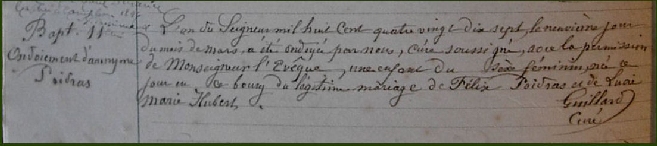 Bapt. 11
Ondoiement d'anonyme
Poidras
L'an du Seigneur mil huit cent quatre vingt dix sept, le neuvième jour
du mois de mars, a été ondoyé par nous, curé soussigné, avec la permission
de Monseigneur l'Evêque, une enfant du sexe féminin, né ce
jour en ce bourg du légitime mariage de Félix Poidras et de Lucie
Marie Hubert.
Guillard
Curé